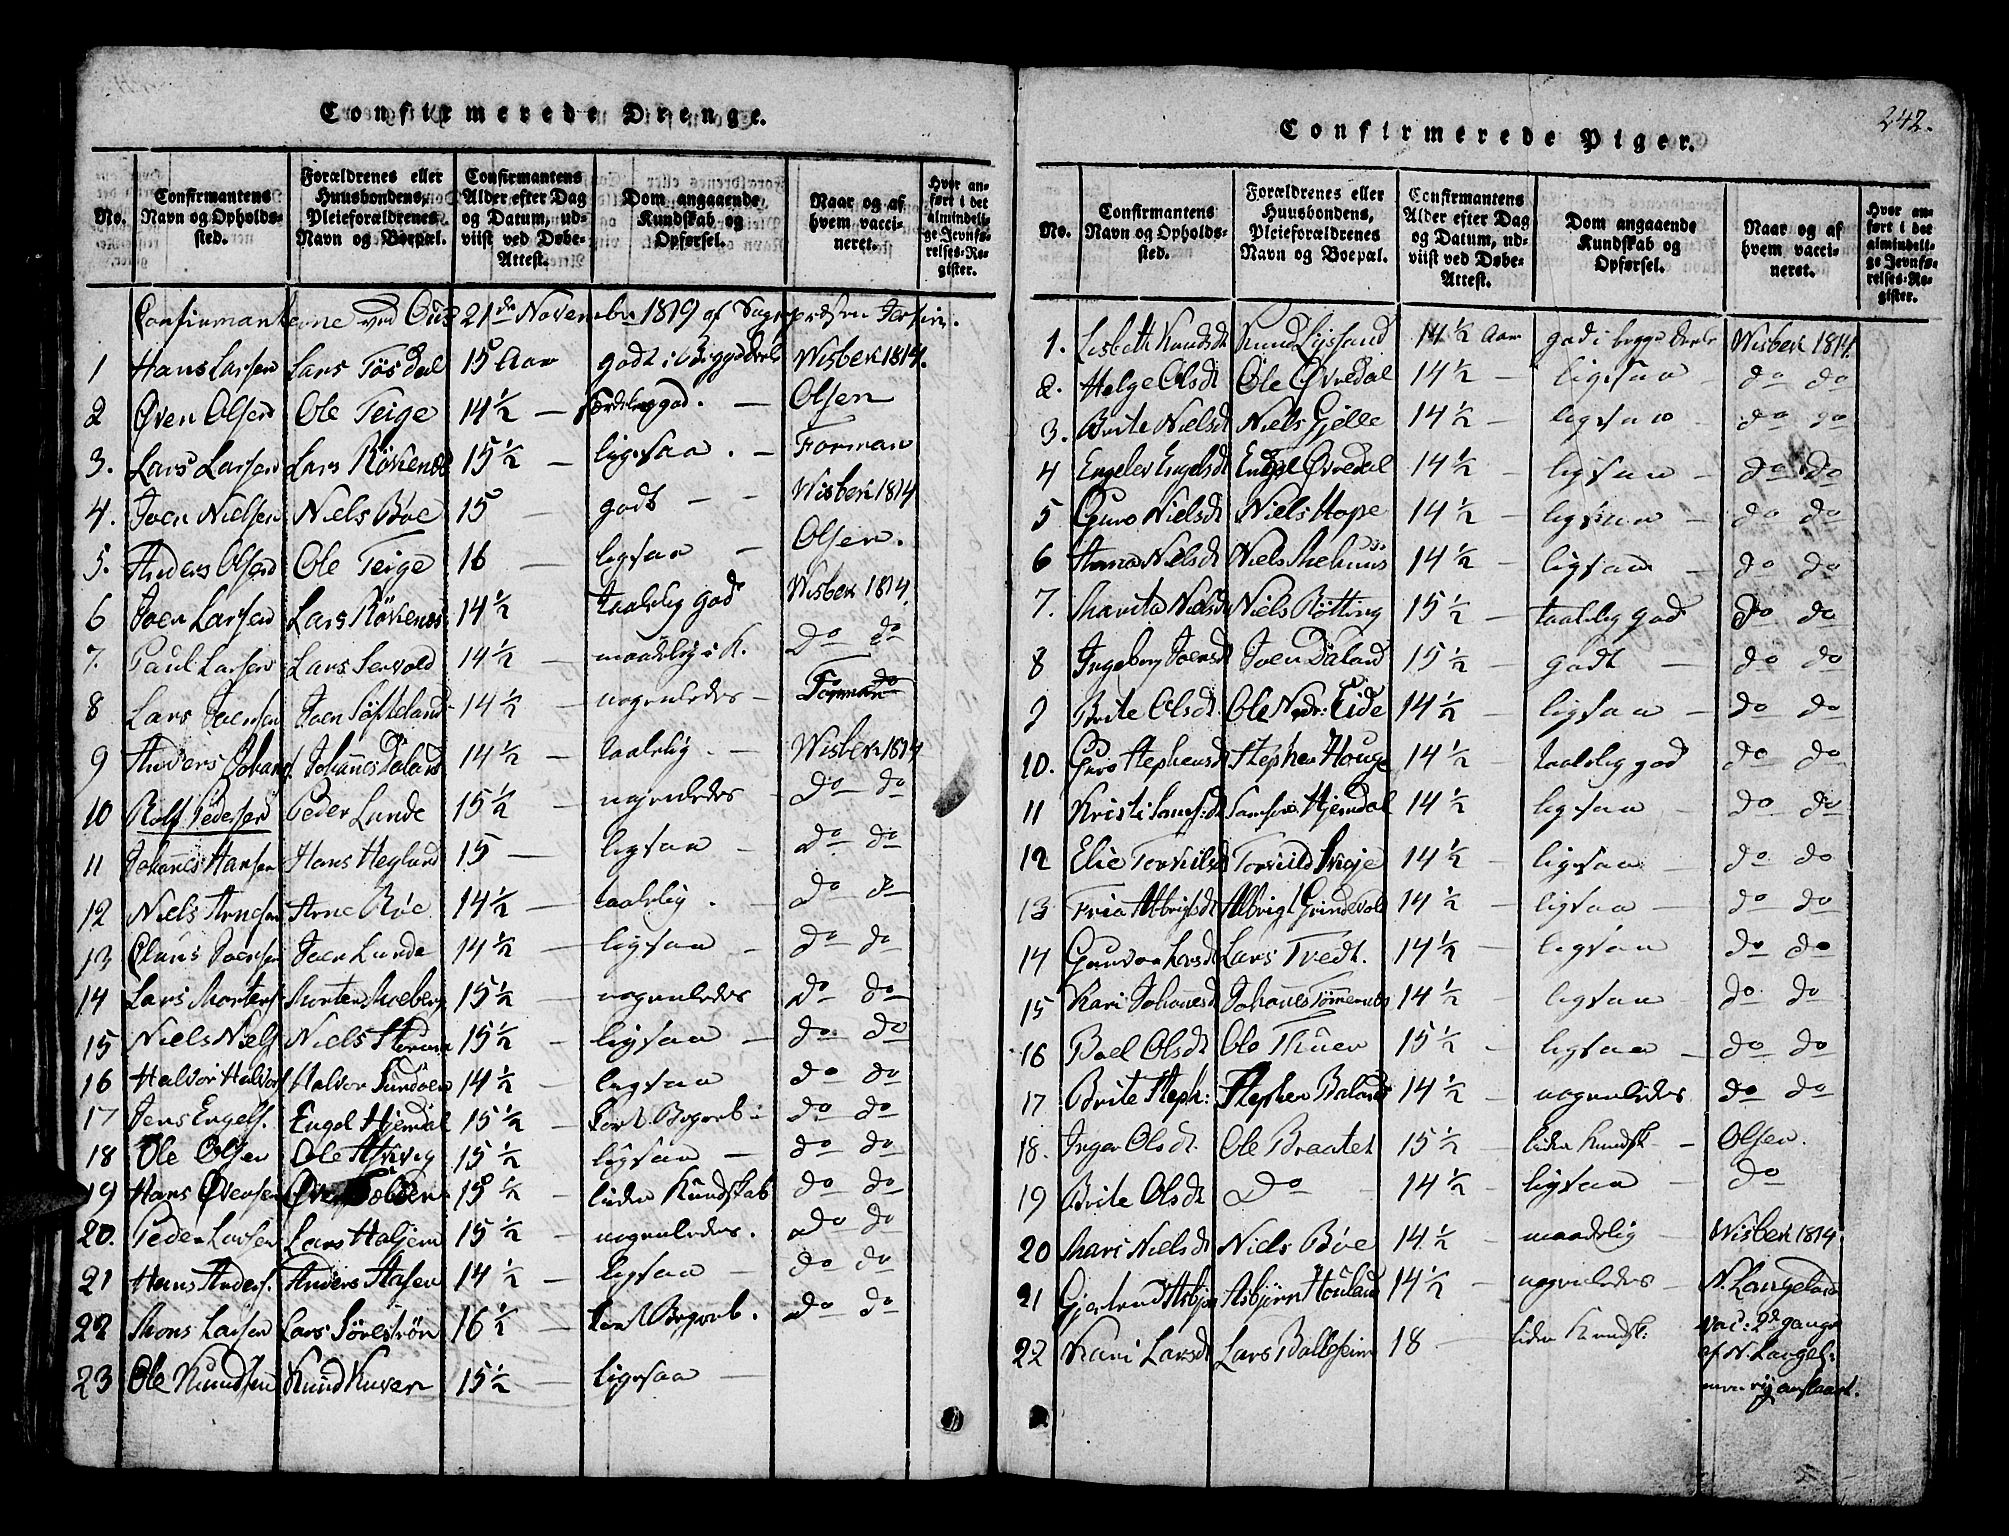 Confirmerede Drenge.
No. | Confirmantens Navn og Opholdssted. | Forældrenes eller Huusbondens, Pleieforældrenes Navn og Boepæl. | Confirmantens Alder efter Dag og Datum, udviist ved Døbe-Attest. | Dom angaaende Kundskab og Opførsel. | Naar og af hvem vaccineret. | Hvor anført i det almindelige Jevnførelses-Register.
Confirmanterne ved Ous 21de November 1819 af
1 Hans Larsen Lars Tøsdal 15 Aar godt i begge Deele Wisbek 1814.
2 Øven Olsen Ole Teige 14½ — god. — Olsen
3. Lars Larsen Lars Røkenes 15½ — ligesaa. — Forman
4. Joen Nielsen Niels Bøe 15 — godt — — Wisbek 1814
5. Anders Olsen Ole Teige 16 — ligesaa — Olsen.
6 Joen Larsen Lars Røkenes 14½ taalelig god Wisbek 1814.
7. Paul Larsen Lars Sevold 14½ — maadelig i K. do do
8 Lars Joensen Joen Søfteland 14½ — nogenledes —
9 Anders Johans. Johannes Døland 14½ — taalelig. — Wisbek 1814
10 Rolf Pedersen Peder Lunde 15½ nogenledes — do do
11 Johannes Hansen Hans Heglund 15 — ligesaa — do do
12 Niels Arnesen Arne Bøe 14½ — taalelig. — do do
13 Claus Joensen Joen Lunde 14½ — ligesaa — do do
14 Lars Mortens. Morten Moeberg 15½ — nogenledes do do
15 Niels Niels. Niels 15½ — ligesaa — do do
16 Halvor Halvors. Halvor Sundøen 14½ — ligesaa do do
17 Jens Engels. Engel Hjemdal 15½ — Begreb: do do
18 Ole Olsen Ole Askvig 15½ ligesaa — do do
19 Hans Øvensen Øven 15½ — liden Kundskab do do
20. Peder Larsen Lars Haljem 15½ — nogenledes. do do
21 Hans Anders. Anders 14½ — ligesaa — do do
22 Mons Larsen Lars Sørestrøn 16½ — Begreb. do do
23 Ole Knudsen Knud Kuven 15½ — ligesaa —
242.
Confirmerede Piger.
No. | Confirmantens Navn og Opholdssted. | Forældrenes eller Huusbondens, Pleieforældrenes Navn og Boepæl. | Confirmantens Alder efter Dag og Datum, udviist ved Døbe-Attest. | Dom angaaende Kundskab og Opførsel. | Naar og af hvem vaccineret. | Hvor anført i det almindelige Jevnførelses-Register.
1. Lisbeth Knudsdt Knud Lysland 14½ Aar god i begge Deele Wisbek 1814.
2. Helge Olsdt Ole Øvredal 14½ — ligesaa — do do
3. Brite Nielsdt Niels Gjelle 14½ — ligesaa — do do
4 Engelev Engelsdt Engel Øvredal 14½ — ligesaa — do do
5 Guro Nielsdt Niels Hope 14½ — ligesaa — do do
6 Anna Nielsdt Niels Mehuus 14½ — ligesaa — do do
7. Marita Nielsdt Niels Røtting 15½ — taalelig god do do
8 Ingeborg Joensdt Joen Døland 15½ — godt — do do
9 Brite Olsdt. Ole Nedr: Eide 14½ — ligesaa — do do
10. Guro Stephensdt Stephen Houge 14½ — taalelig god do do
11 Kristi Sams:dt Samson Hjemdal 14½ — ligesaa do do
12 Elie Torkilsdt Torkild Skeje 14½ — ligesaa do do
13 Fria Albrigtsdt Albrigt Grindevold 14½ — ligesaa — do do
14 Larsdt Lars Tvedt. 14½ — ligesaa do do
15 Kari Johannesdt Johannes Tømmernes 14½ — ligesaa do do
16 Boel Olsdt Ole Thuen 15½ — ligesaa — do do
17 Brite Steph: Stephen Baland 14½ — nogenledes do do
18. Inger Olsdt. Ole Braatet 15½ — liden Kundsk — Olsen.
19 Brite Olsdt Do — 14½ — ligesaa — do
20 Mari Nielsdt Niels Bøe 14½ — maadelig — Wisbek 1814.
21 Gjertrud Asbjørn Houland 14½ — nogenledes — N. Langeland
22 Kari Larsdt Lars Ballesem 18 liden Kundsk: vac: 2de gange
af N. Langel:
men ej anslaaet.